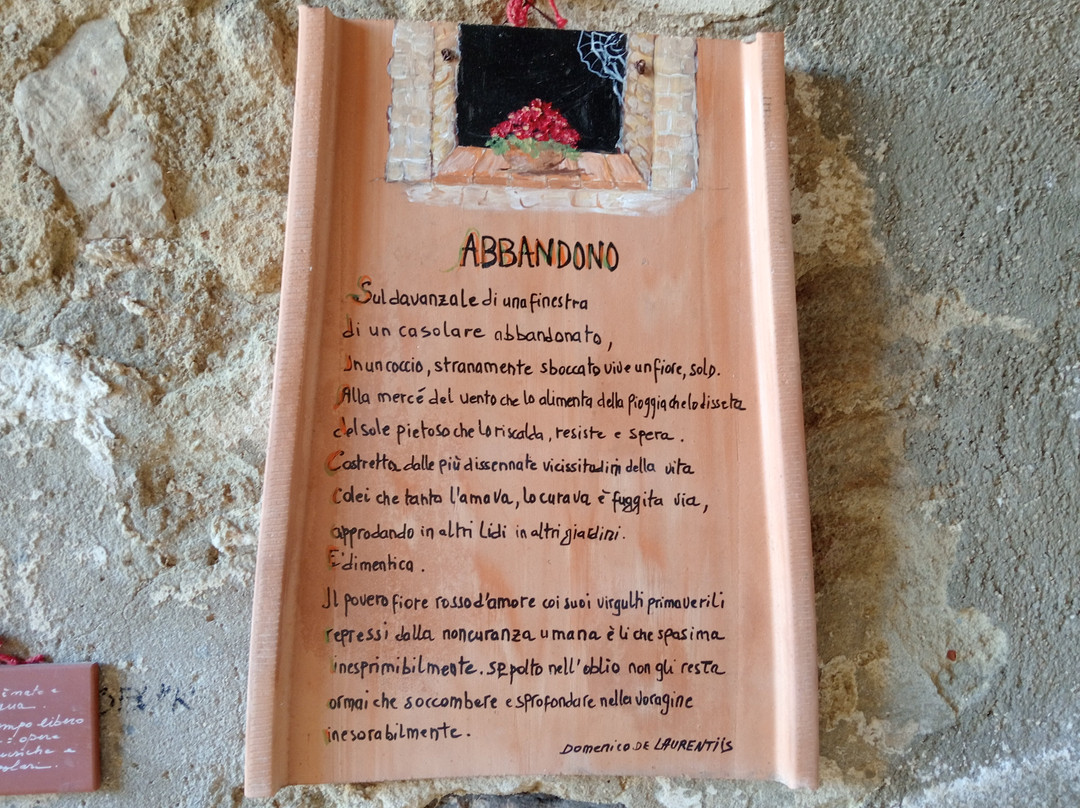 ABBANDONO
Sul davanzale di una finestra
di un casolare abbandonato,
In un coccio, stranamente sboccato vive un fiore, solo.
Alla mercé del vento che lo alimenta della pioggia che lo disseta
del sole pietoso che lo riscalda, resiste e spera.
Costretta dalle più dissennate vicissitudini della vita
Colei che tanto l'amava, lo curava è fuggita via,
approdando in altri lidi in altri giardini.
E' dimentica.
Il povero fiore rosso d'amore coi suoi virgulti primaverili
repressi dalla noncuranza umana è lì che spasima
inesprimibilmente. sepolto nell'oblio non gli resta
ormai che soccombere e sprofondare nella voragine
inesorabilmente.
Domenico DE LAURENTIIS
mpo libero
opere